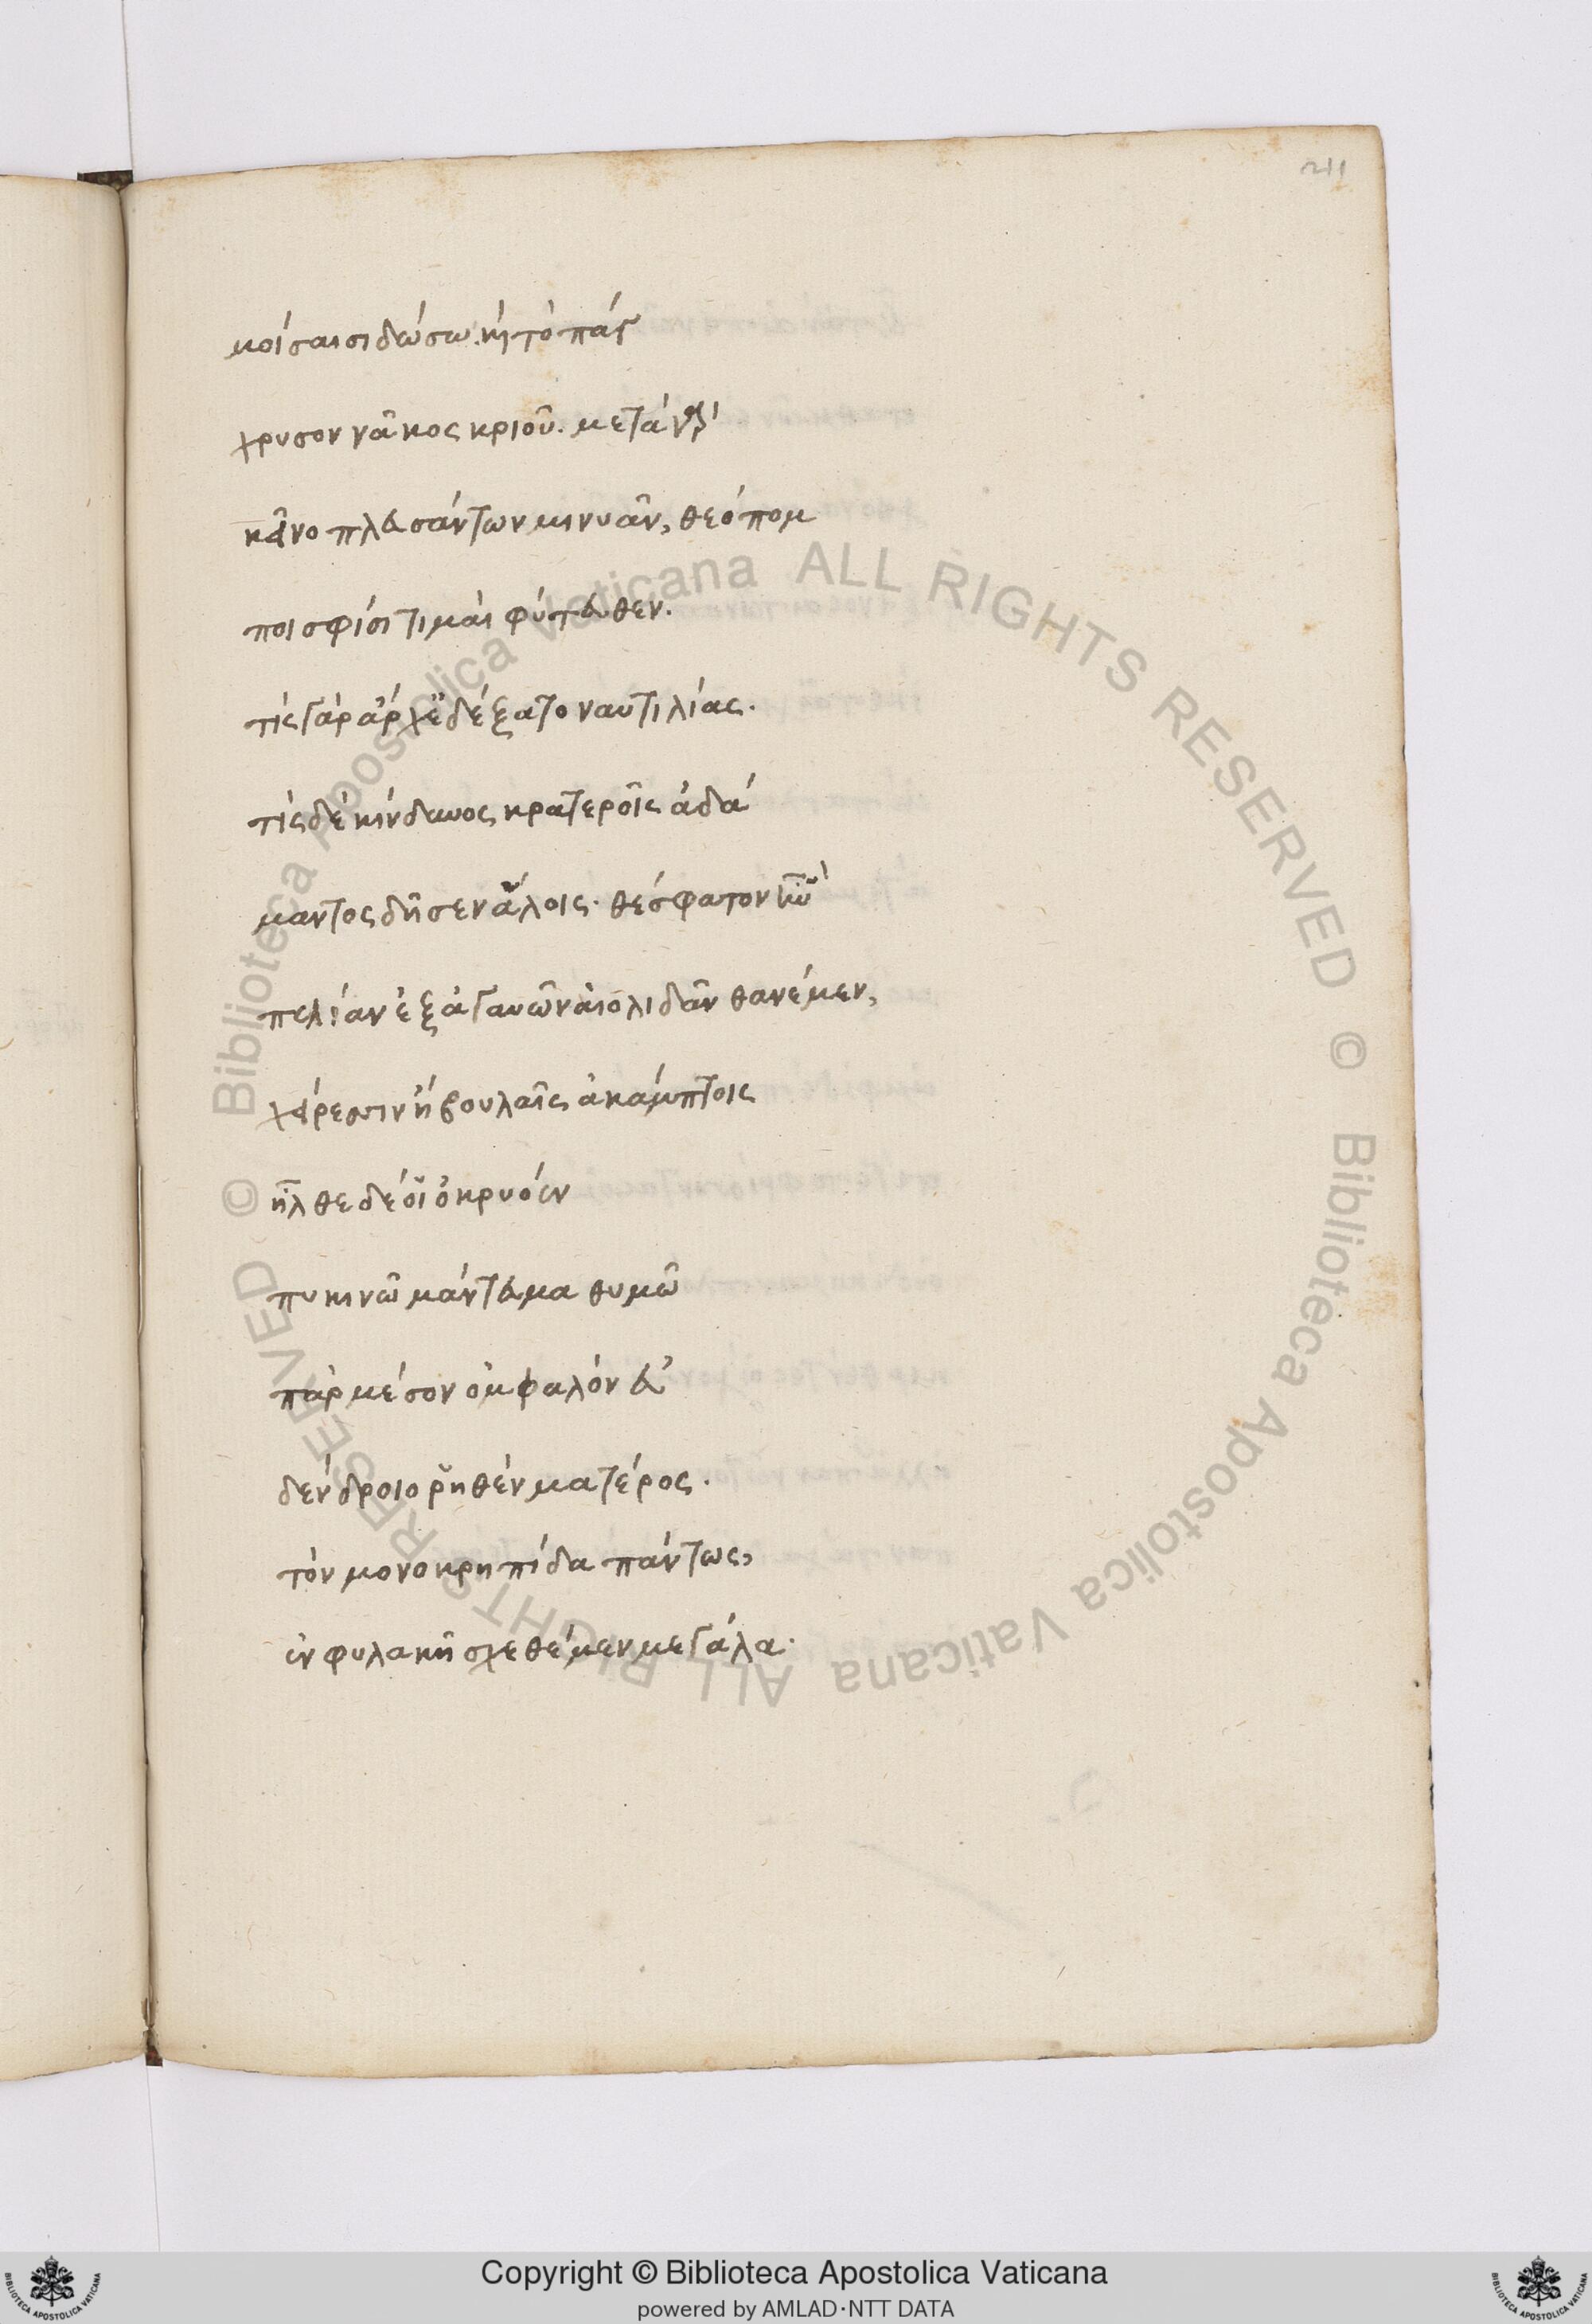 211
μοίσαισι δώσω. κὴ τὸ πάγ
χρυσον νᾶκος κριοῦ. μετὰ γὰρ
κεῖνο πλευσάντων μινυᾶν, θεόπομ
ποι σφίσι τιμαὶ φύτευθεν.
τίς γὰρ ἀρχὴ δέξατο ναυτιλίας.
τίς δὲ κίνδυνος κρατεροῖς ἀδά
μαντος δῆσεν ἅλοις. θέσφατον ἦν
πελίαν ἐξ ἀγαυῶν αἰολιδᾶν θανέμεν,
χείρεσιν ἢ βουλαῖς ἀκάμπτοις
ἦλθε δέ οἱ ὀκρυόεν
πυκινῶ μάντευμα θυμῶ
πὰρ μέσον ὀμφαλὸν εὐ
δένδροιο ῥηθὲν ματέρος.
τὸν μονοκρηπίδα πάντως,
ἐν φυλακῆ σχεθέμεν μεγάλα.
© Biblioteca Apostolica Vaticana ALL RIGHTS RESERVED © Biblioteca Apostolica Vaticana ALL RIGHTS RESERVED
Copyright © Biblioteca Apostolica Vaticana
powered by AMLAD·NTT DATA